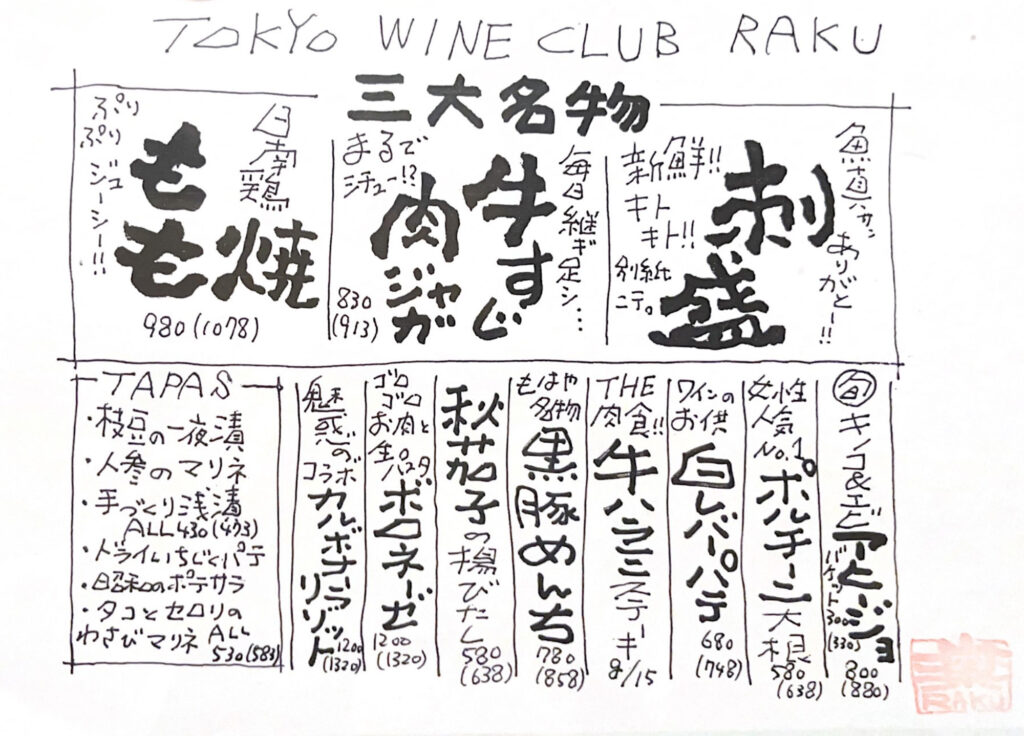 TOKYO WINE CLUB RAKU
三大名物
魚直サン
ありがとー!!
刺盛
新鮮!!
キト
キト!!
別紙
ニテ。
毎日継ぎ足シ…
牛すじ
肉ジャガ
まるで
シチュー!?
830
(913)
日南鶏
もも焼
ぷり
ぷり
ジューシー!!
980(1078)
旬 キノコ&エビ
アヒージョ
バケット300
(330)
800
(880)
女性
人気
No.1
ポルチーニ大根
580
(638)
ワインの
お供
白レバーパテ
680
(748)
THE
肉食!!
牛ハラミステーキ
8/15
もはや
名物
黒豚めんち
780
(858)
秋茄子の揚びたし
580
(638)
ゴロ
ゴロ
お肉と
生。
パスタ
ボロネーゼ
1200
(1320)
魅惑の
コラボ
カルボナーラ
リゾット
1200
(1320)
TAPAS
・枝豆の一夜漬
・人参のマリネ
・手づくり浅漬
ALL 430(473)
・ドライいちじくパテ
・昭和のポテサラ
・タコとセロリの
わさびマリネ ALL
530(583)
RAKU